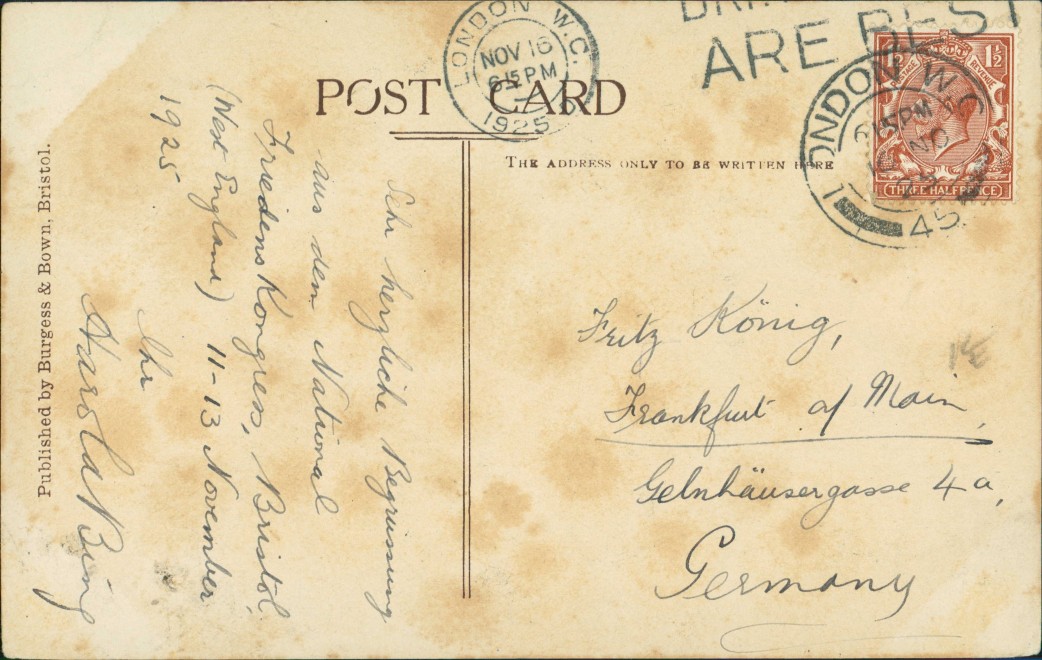 LONDON W.C.
NOV 16
6 15 PM
1925
ARE BEST
POST CARD
THE ADDRESS ONLY TO BE WRITTEN HERE
1½
POSTAGE
REVENUE
THREE HALFPENCE
LONDON W.C
6 15 PM
NO
45
Sehr herzliche Begrüssung
aus den National
Friedens Kongress, Bristol,
(West England) 11-13 November
1925
Ihr
Harold Bing
Fritz König,
Frankfurt a/ Main,
Gelnhäusergasse 4a,
Germany
Published by Burgess & Bown, Bristol.